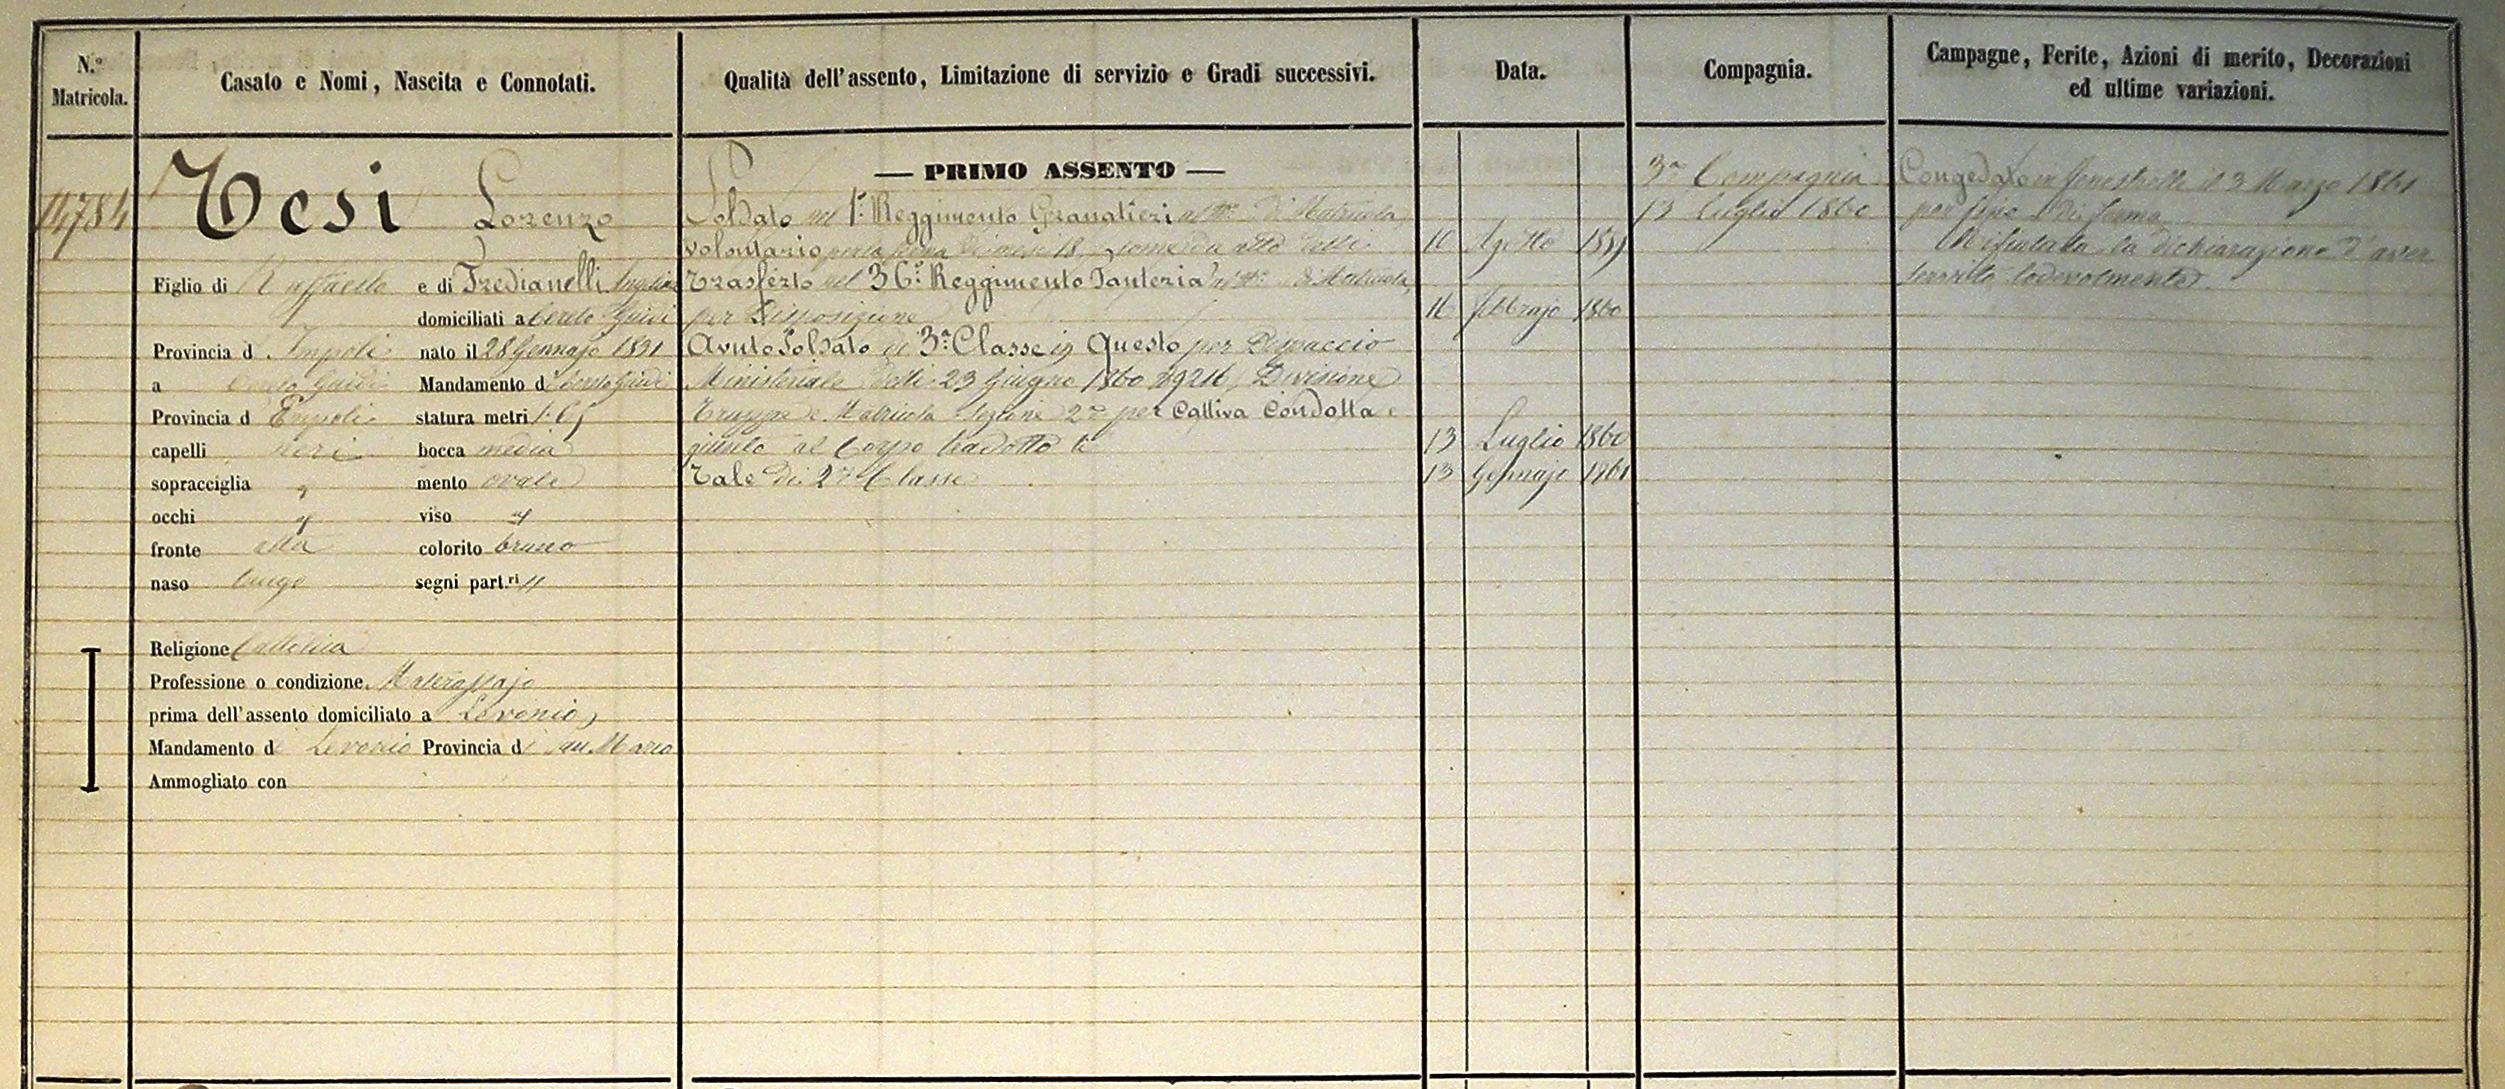 N.º Matricola.
Casato e Nomi, Nascita e Connotati.
Qualità dell'assento, Limitazione di servizio e Gradi successivi.
Data.
Compagnia.
Campagne, Ferite, Azioni di merito, Decorazioni
ed ultime variazioni.
14784
Tesi Lorenzo
Figlio di Raffaello e di Fredianelli
domiciliati a Cereto Guidi
Provincia d Empoli nato il 28 Gennajo 1831
a Cereto Guidi Mandamento d Cereto Guidi
Provincia d Empoli statura metri 1.65
capelli neri bocca media
sopracciglia " mento ovale
occhi " viso "
fronte alta colorito bruno
naso lungo segni part.ri "
Religione Cattolica
Professione o condizione Materassajo
prima dell'assento domiciliato a
Mandamento d Provincia d San
Ammogliato con
— PRIMO ASSENTO —
Soldato nel 1º Reggimento Granatieri al Nº di Matricola
volontario per la ferma di mesi 18, come da atto delli 10 Agosto 1859
Trasferto nel 36º Reggimento Fanteria al Nº di Matricola,
per Disposizione 16 febbrajo 1860
Avuto Soldato di 3ª Classe in Questo per Dispaccio
Ministeriale delli 23 Giugno 1860 Nº 9216, Divisione
Truppa e Matricola Sezione 2ª per Cattiva Condotta e
giunto al Corpo tradotto li 13 Luglio 1860
Tale di 2ª Classe 13 Gennajo 1861
3ª Compagnia
13 Luglio 1860
Congedato in Fenestrelle il 3 Marzo 1861
per fine di ferma
Rifiutata la dichiarazione d'aver
servito lodevolmente